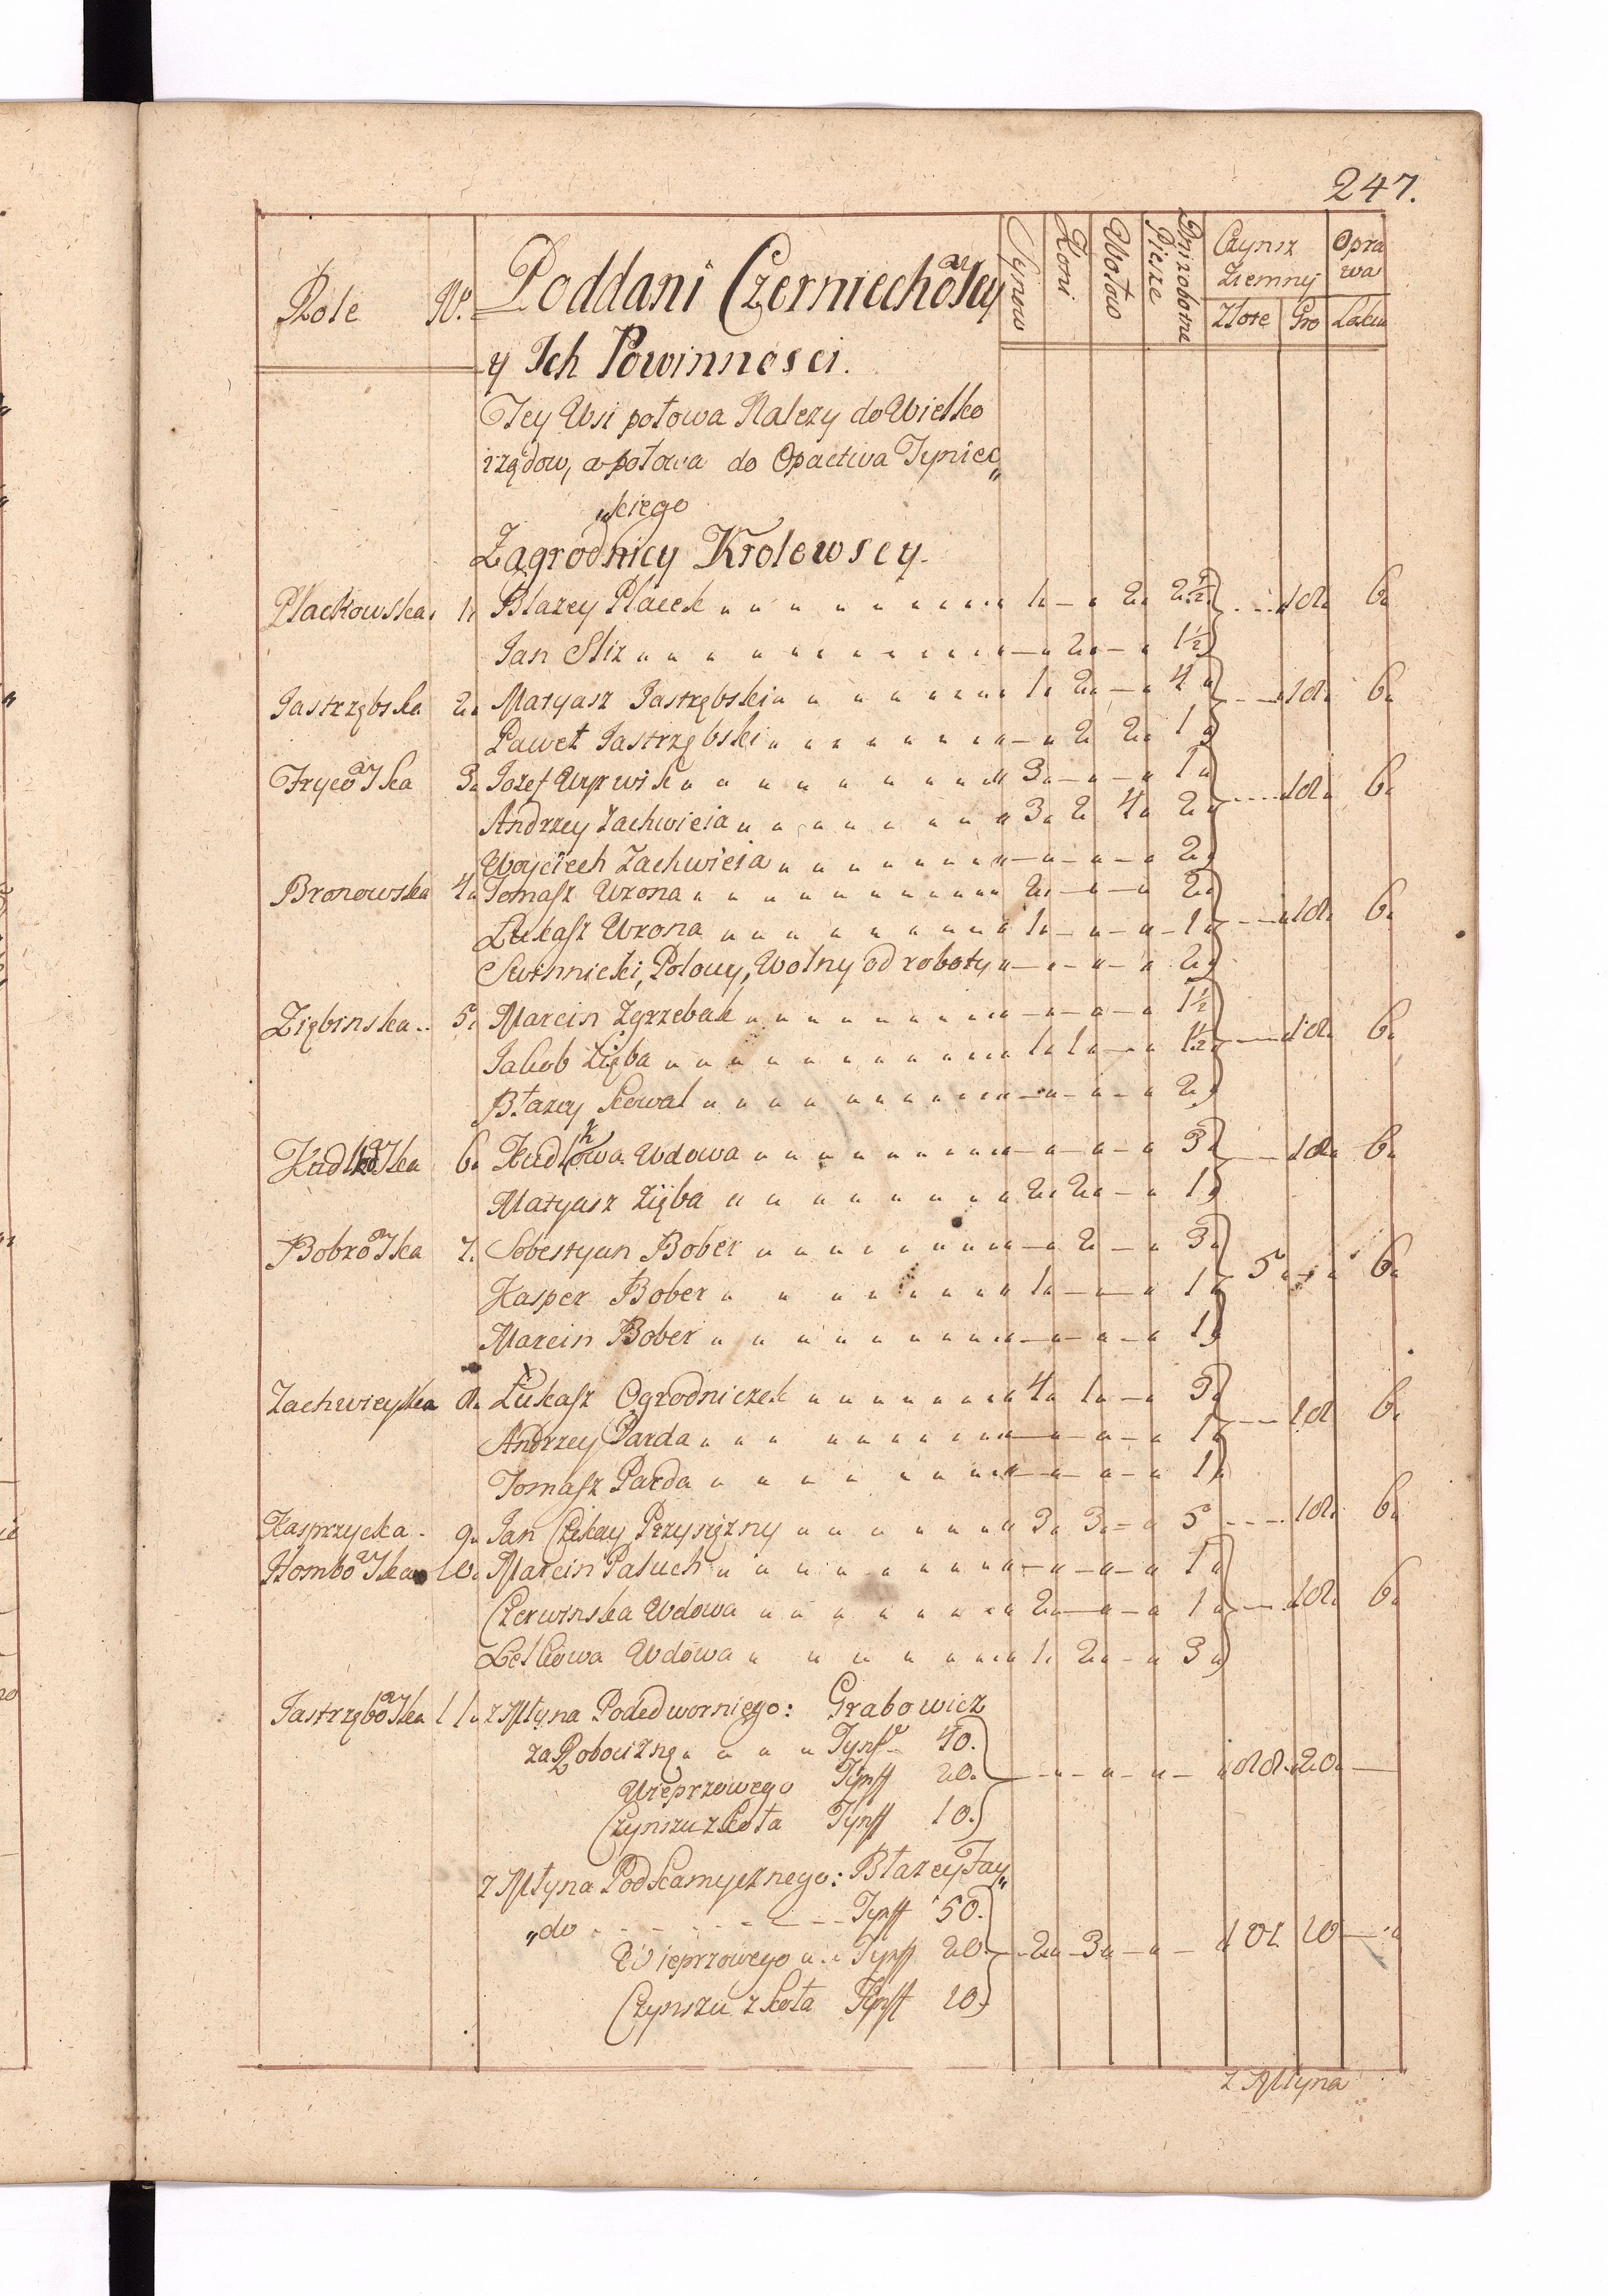 247.
Role No. Poddani Czerniechowscy Synow Koni Wołow Dni robotne Piesze Czynsz Ziemny Opra
wa
Złote Gro Łokcie
y Ich Powinnosci.
Tey Wsi połowa Nalezy do Wielko
rządow, a połowa do Opactwa Tyniec„
„kiego
Zagrodnicy Krolewscy.
Plackowska 1. Błazey Placek 1 — 2 2½ 18 6
Jan Sliz — 2 — 1½
Jastrzębska 2. Matyasz Jastrzębski 1 2 — 4 18 6
Paweł Jastrzębski — 2 2 1
Frycowska 3. Jozef Wyrwisk 3 — — 1 18 6
Andrzey Zachwieia 3 2 4 2
Woyciech Zachwieia — — — 2
Bronowska 4. Tomasz Wrona 2 — — 2 18 6
Łukasz Wrona 1 — — 1
Swinnicki, Polowy, Wolny od roboty — — — 2
Ziębinska 5. Marcin Zgrzebak — — — 1½ 18 6
Jakob Zięba 1 1 — 1½
Błazey Kowal — — — 2
Kudłkowska 6. Kudłkowa Wdowa — — — 3 18 6
Matyasz Zięba 2 2 — 1
Bobrowska 7. Sobestyan Bober — 2 — 3 5 — 6
Kasper Bober 1 — — 1
Marcin Bober — — — 1
Zachwieyska 8. Łukasz Ogrodniczek 4 1 — 3 18 6
Andrzey Parda — — — 1
Tomasz Parda — — — 1
Kasprzycka 9. Jan Czekay Przysięzny 3 3 — 5 18 6
Hombowska 10. Marcin Paluch — — — 1 18 6
Czerwinska Wdowa 2 — — 1
Lelkowa Wdowa 1 2 — 3
Jastrzębowska 11. z Młyna Podedworniego: Grabowicz
za Robociznę Tynff 40.
Wieprzowego Tynff 20. — — — — 88 20 —
Czynszu z Koła Tynff 10.
z Młyna Podkamycznego: Błazey Fay„
„do Tynff 50.
Wieprzowego Tynff 20. 2 3 — — 101 10 —
Czynszu z Koła Tynff 10.
z Młyna